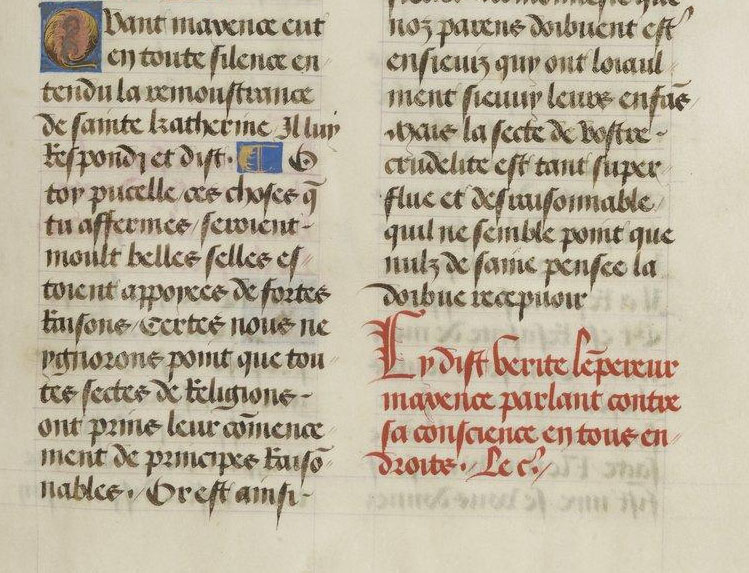 Quant maxence eut
en toute silence en
tendu la remoustrance
de sainte katherine / Il luy
respondy et dist · O
toy pucelle / ces choses q̄
tu affermes / seroient
moult belles selles es
toient appoyees de fortes
raisons / Certes nous ne
ygnorons point que tou
tes sectes de religions
ont prins leur cōmence
ment de principes raisō
nables · / Or est ainsi
noz parens doibuent est
ensieuiz quy ont loiaul
ment sieuuy leurs enfās
Mais la secte de vostre
crudelite est tant super
flue et desraisonnable
quil ne semble point que
nulz de saine pensee la
doibue recepuoir
Cy dist verite lēpereur
maxence parlant contre
sa conscience en tous en
droits · Le c ·